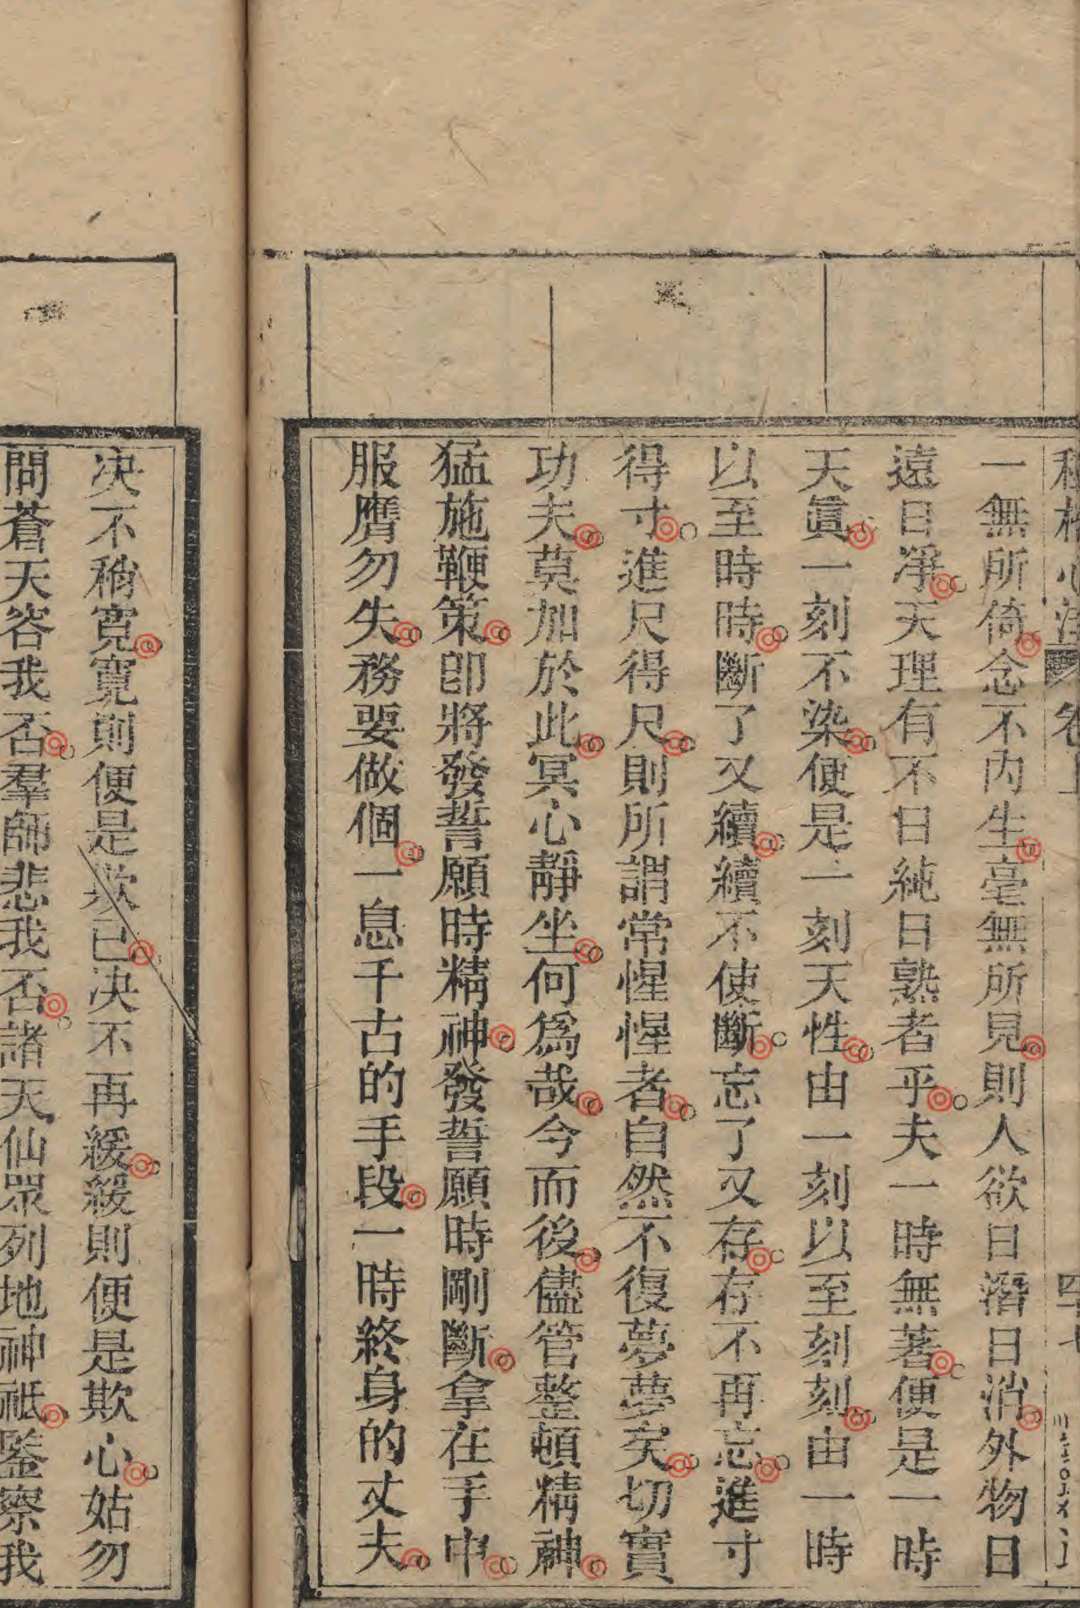 卷上
一無所倚念不內生毫無所見則人欲日潛日消外物日
遠日淨天理有不日純日熟者乎夫一時無著便是一時
天眞一刻不染便是一刻天性由一刻以至刻刻由一時
以至時時斷了又續續不使斷忘了又存存不再忘進寸
得寸進尺得尺則所謂常惺惺者自然不復夢夢矣切實
功夫莫加於此冥心靜坐何爲哉今而後儘管整頓精神
猛施鞭策卽將發誓願時精神發誓願時剛斷拿在手中
服膺勿失務要做個一息千古的手段一時終身的丈夫
決不稍寬寬則便是欺已決不再緩緩則便是欺心姑勿
問蒼天容我否羣師悲我否諸天仙眾列地神祇鑒察我